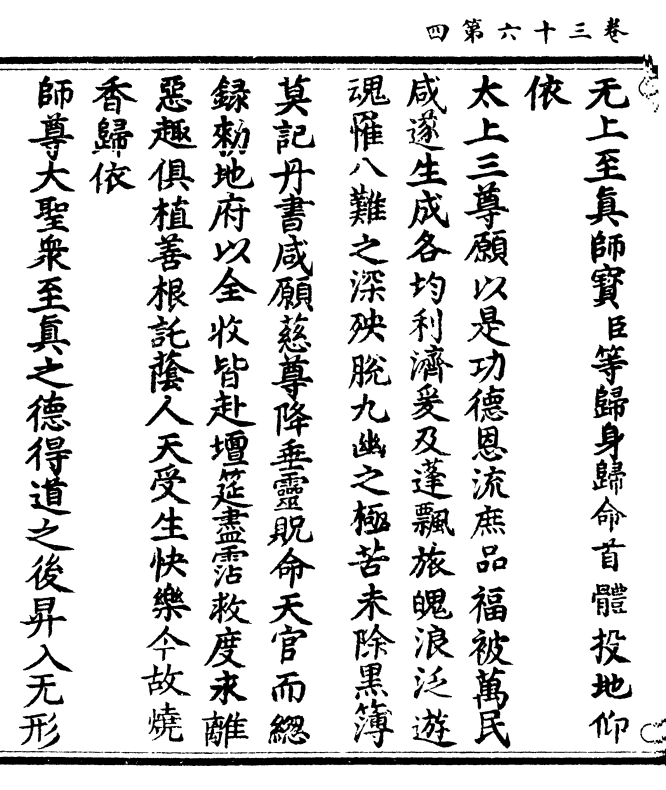 卷三十六第四
无上至真師寳臣等歸身歸命首體投地仰
依
太上三尊願以是功德恩流庶品福被萬民
咸遂生成各均利濟爰及蓬飄旅魄浪泛遊
魂罹八難之深殃脫九幽之極苦未除黑簿
莫記丹書咸願慈尊降垂靈貺命天官而緫
録勑地府以全收皆赴壇筵盡霑救度永離
惡趣俱植善根託蔭人天受生快樂今故燒
香歸依
師尊大聖衆至真之德得道之後昇入无形